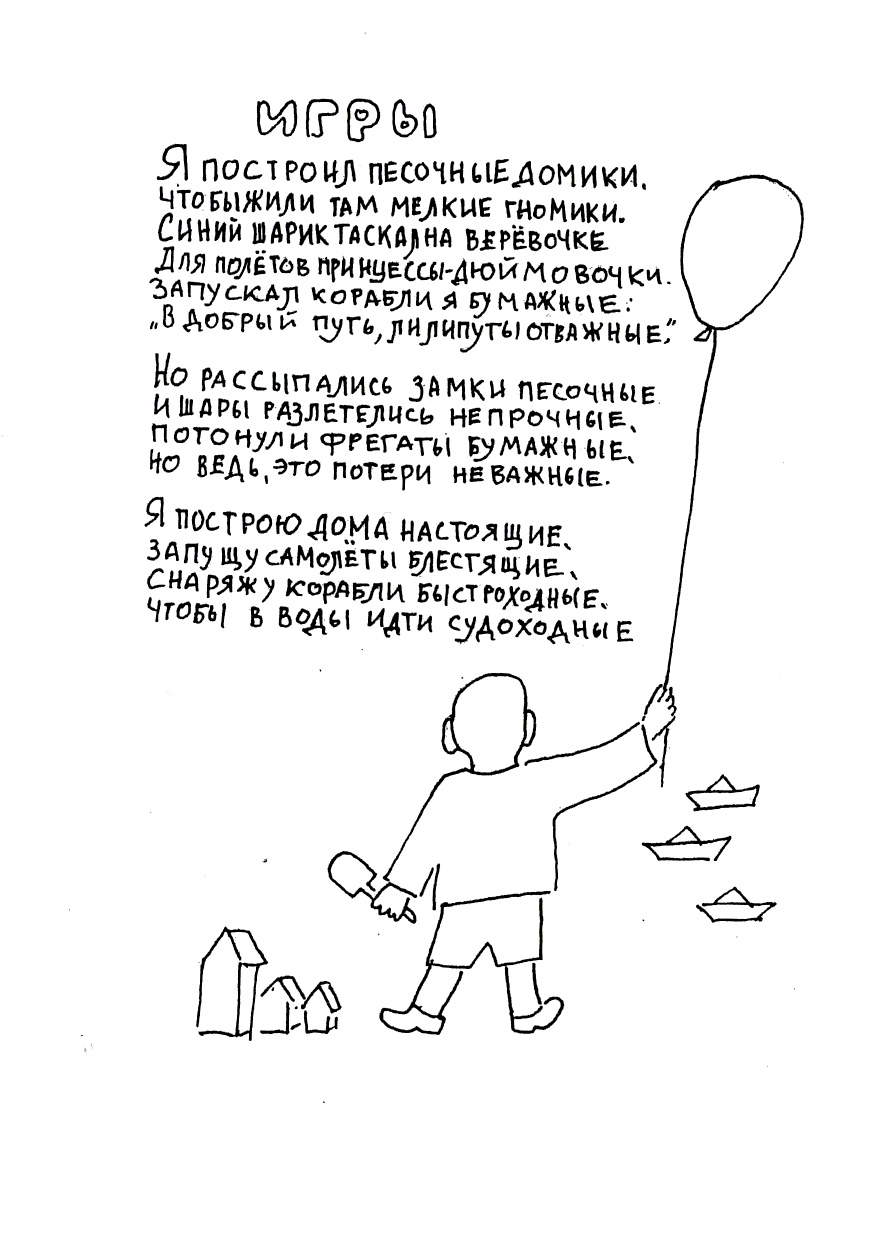 ИГРЫ
Я ПОСТРОИЛ ПЕСОЧНЫЕ ДОМИКИ.
ЧТОБЫ ЖИЛИ ТАМ МЕЛКИЕ ГНОМИКИ.
СИНИЙ ШАРИК ТАСКАЛ НА ВЕРЁВОЧКЕ
ДЛЯ ПОЛЁТОВ ПРИНЦЕССЫ-ДЮЙМОВОЧКИ.
ЗАПУСКАЛ КОРАБЛИ Я БУМАЖНЫЕ:
„В ДОБРЫЙ ПУТЬ, ЛИЛИПУТЫ ОТВАЖНЫЕ."
НО РАССЫПАЛИСЬ ЗАМКИ ПЕСОЧНЫЕ
И ШАРЫ РАЗЛЕТЕЛИСЬ НЕПРОЧНЫЕ,
ПОТОНУЛИ ФРЕГАТЫ БУМАЖНЫЕ,
НО ВЕДЬ, ЭТО ПОТЕРИ НЕВАЖНЫЕ.
Я ПОСТРОЮ ДОМА НАСТОЯЩИЕ,
ЗАПУЩУ САМОЛЁТЫ БЛЕСТЯЩИЕ,
СНАРЯЖУ КОРАБЛИ БЫСТРОХОДНЫЕ,
ЧТОБЫ В ВОДЫ ИДТИ СУДОХОДНЫЕ